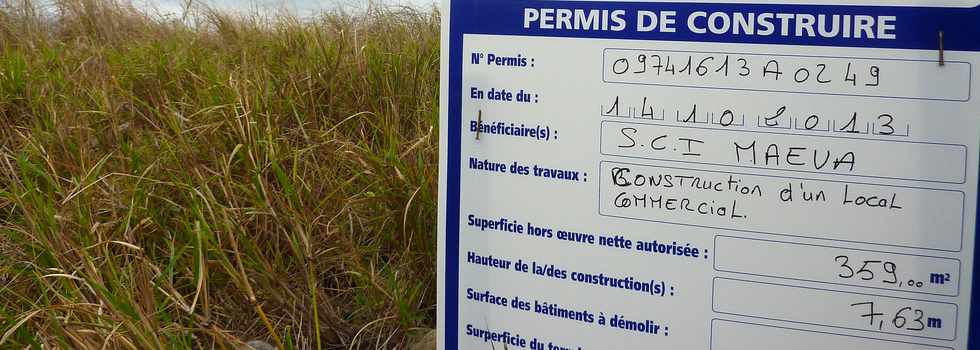 PERMIS DE CONSTRUIRE
N° Permis : 09741613 A 0249
En date du : 14 10 2013
Bénéficiaire(s) : S.C.I MAEVA
Nature des travaux : CONSTRUCTION d'un Local
COMMERCIAL.
Superficie hors œuvre nette autorisée : 359,00 m²
Hauteur de la/des construction(s) : 7,63 m
Surface des bâtiments à démolir :
Surperficie du